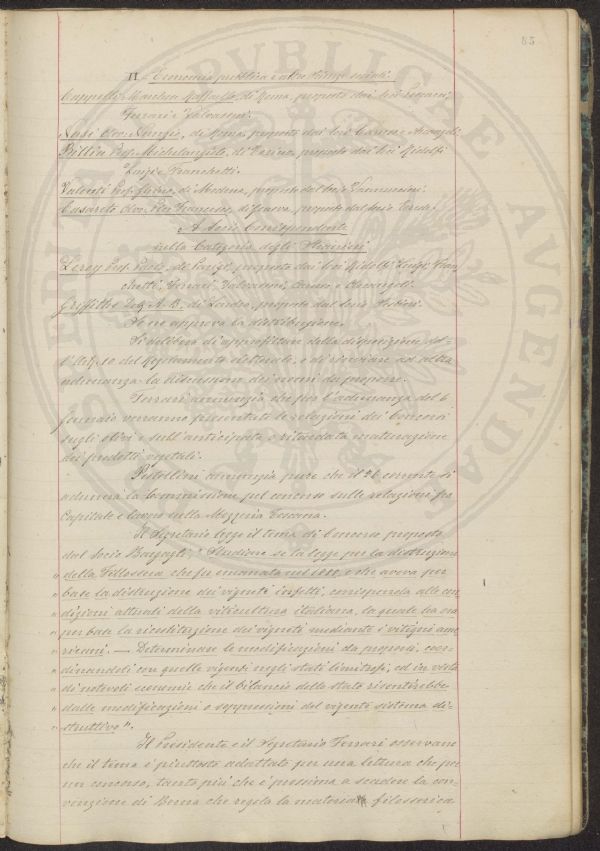 85
II Economia pubblica e altre scienze sociali.
Cappelli Marchese Raffaello, di Roma, proposto dai Soci
Ferrari e Valvassori.
Nasi Avv. di Roma, proposto dai Soci e Arcangeli.
Billia Prof. Michelangelo, di Torino, proposto dai Soci Ridolfi
Luigi e Franchetti.
Valenti Prof. Ghino, di Modena, proposto dal Socio
Casareto Avv. Pier Francesco, di Genova, proposto dal Socio
A Socio Corrispondente
nella Categoria degli Stranieri
Leroy Prof. Paolo, di Parigi, proposto dai Soci Ridolfi Luigi, Fran-
chetti, Ferrari, Valvassori, e Arcangeli.
Griffiths A. B. di Londra, proposto dal Socio
Se ne approva la distribuzione.
Si delibera di approfittare della disposizione del-
l'Art. 10 del Regolamento elettorale, e di rinviare ad altra
adunanza la discussione dei nomi da proporre.
Ferrari annunzia che per l'adunanza del 6
gennaio verranno presentate le relazioni dei concorsi
sugli olivi e sull'anticipata o ritardata maturazione
dei prodotti vegetali.
Pestellini annunzia pure che il 26 corrente si
adunerà la Commissione pel concorso sulle relazioni fra
Capitale e lavoro nella Mezzeria Toscana.
Il Segretario legge il tema di Concorso proposto
dal Socio Bargagli; "Studiare se la legge per la distruzione
" della Fillossera che fu emanata nel e che aveva per
" base la distruzione dei vigneti infetti, corrisponda alle con
" dizioni attuali della viticultura italiana, la quale ha ora
" per base la ricostituzione dei vigneti mediante i vitigni ame
" ricani. — Determinare le modificazioni da proporsi, coor-
" dinandole con quelle vigenti negli stati limitrofi, ed in vista
" di notevoli economie che il bilancio dello stato risentirebbe
" dalle modificazioni o soppressioni del vigente sistema di-
" struttivo".
Il Presidente e il Segretario Ferrari osservano
che il tema è piuttosto adattato per una lettura che per
un concorso, tanto più che è prossima a scadere la con-
venzione di Berna che regola la materia filosserica,